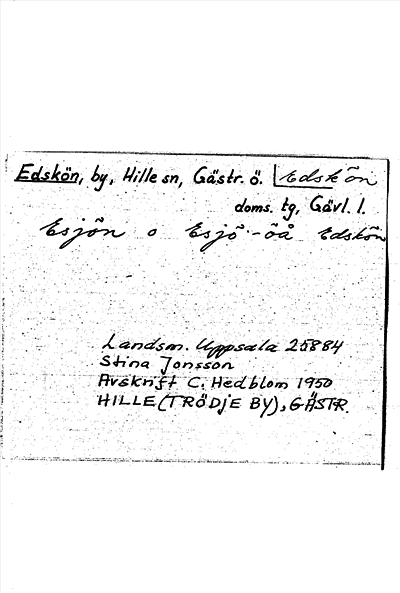 Edskön, by, Hille sn, Gästr. ö. Edskön
doms. tg, Gävl. l.
Esjön o Esjö-öå Edskön
Landsm. Uppsala 25884
Stina Jonsson
Avskrift C. Hedblom 1950
HILLE (TRÖDJE BY), GÄSTR.